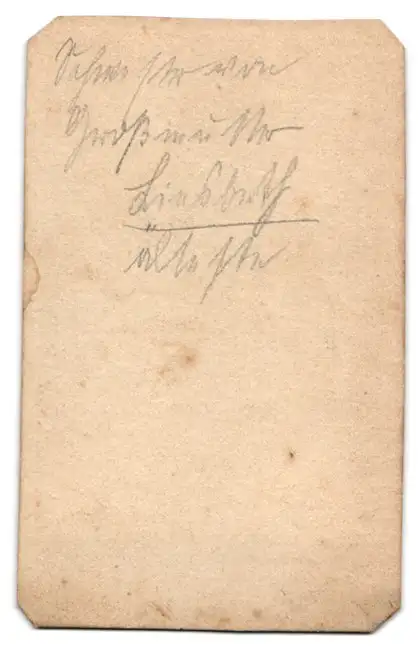 Schwester von
Großmutter
Liesbeth
älteste